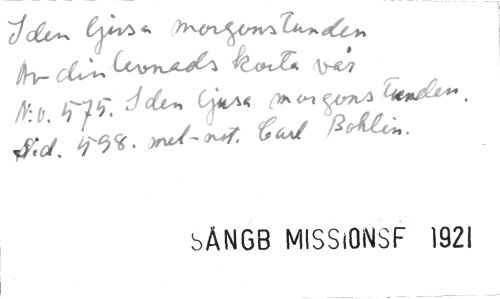 I den ljusa morgonstunden
Av din levnads korta vår
N:o. 575. I den ljusa morgonstunden.
Sid. 598. mel-not. Carl Bohlin.
SÅNGB MISSIONSF 1921